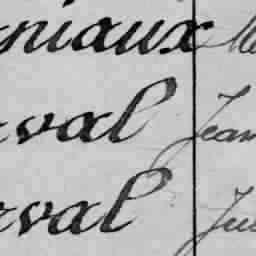 niaux Me
rval Jean
rval Jul